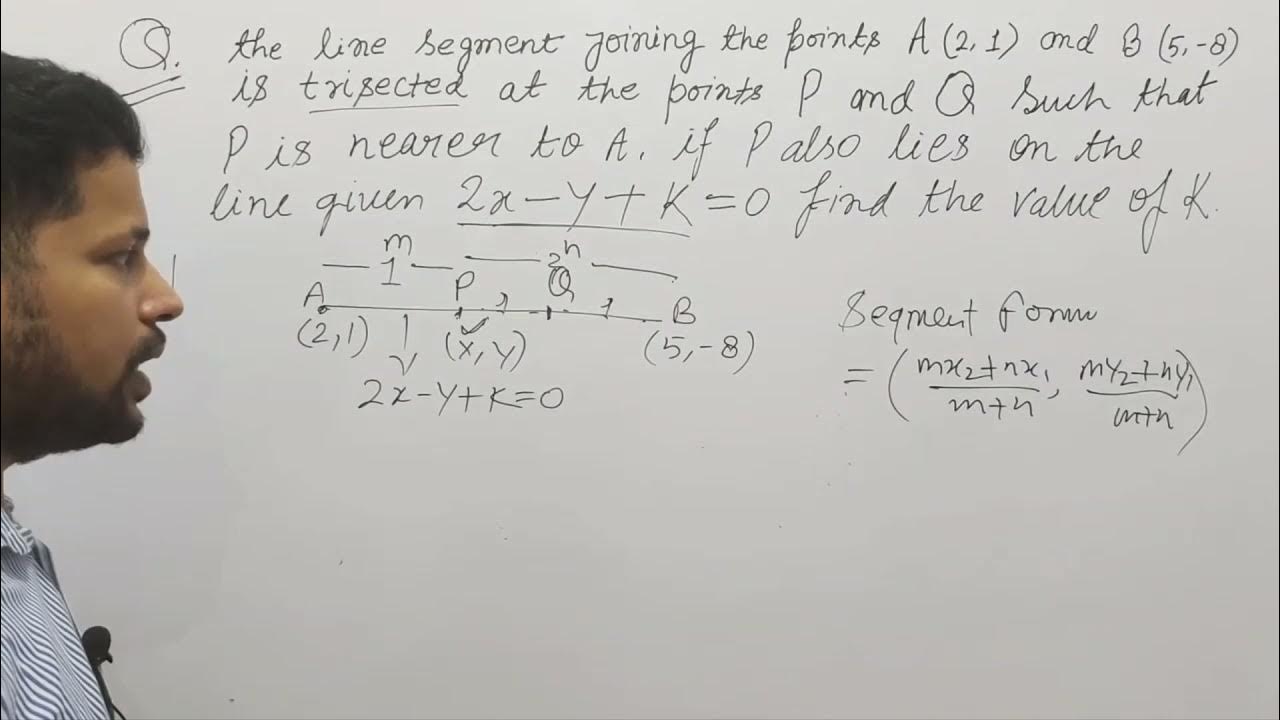 Q. the line segment joining the points A (2, 1) and B (5, -8)
is trisected at the points P and Q such that
P is nearer to A. if P also lies on the
line given 2x - y + K = 0 find the value of K.
m n
1 2
A P 1 Q 1 B
(2, 1) (x, y) (5, -8)
2x - y + K = 0
Segment form
= (mx₂+nx₁/m+n, my₂+ny₁/m+n)